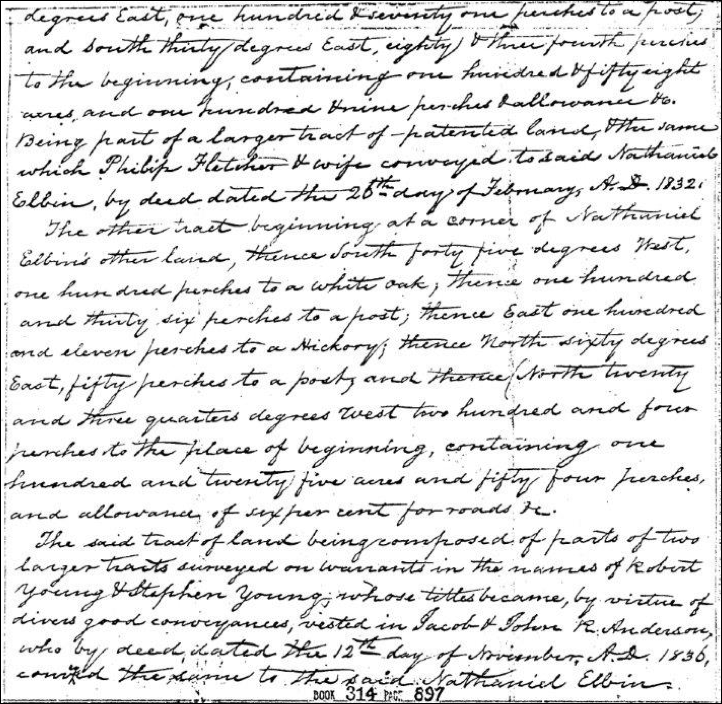 degrees East, one hundred & seventy one perches to a post;
and South thirty degrees East, eighty & three fourth perches
to the beginning, containing one hundred & fifty eight
acres and one hundred & nine perches & allowance &c.
Being part of a larger tract of patented land, & the same
which Philip Fletcher & wife conveyed to said Nathaniel
Elbin, by deed dated the 26th day of February, A.D. 1832.
The other tract beginning at a corner of Nathaniel
Elbin's other land, thence South forty five degrees West,
one hundred perches to a white oak; thence one hundred
and thirty six perches to a post; thence East one hundred
and eleven perches to a Hickory; thence North sixty degrees
East, fifty perches to a post, and thence North twenty
and three quarters degrees West two hundred and four
perches to the place of beginning, containing one
hundred and twenty five acres and fifty four perches,
and allowance of six per cent for roads &c.
The said tract of land being composed of parts of two
larger tracts surveyed on warrants in the names of Robert
Young & Stephen Young, whose titles became, by virtue of
divers good conveyances, vested in Jacob & John R. Anderson,
who by deed, dated the 12th day of November, A.D. 1836,
the same to the said Nathaniel Elbin.
BOOK 314 PAGE 897